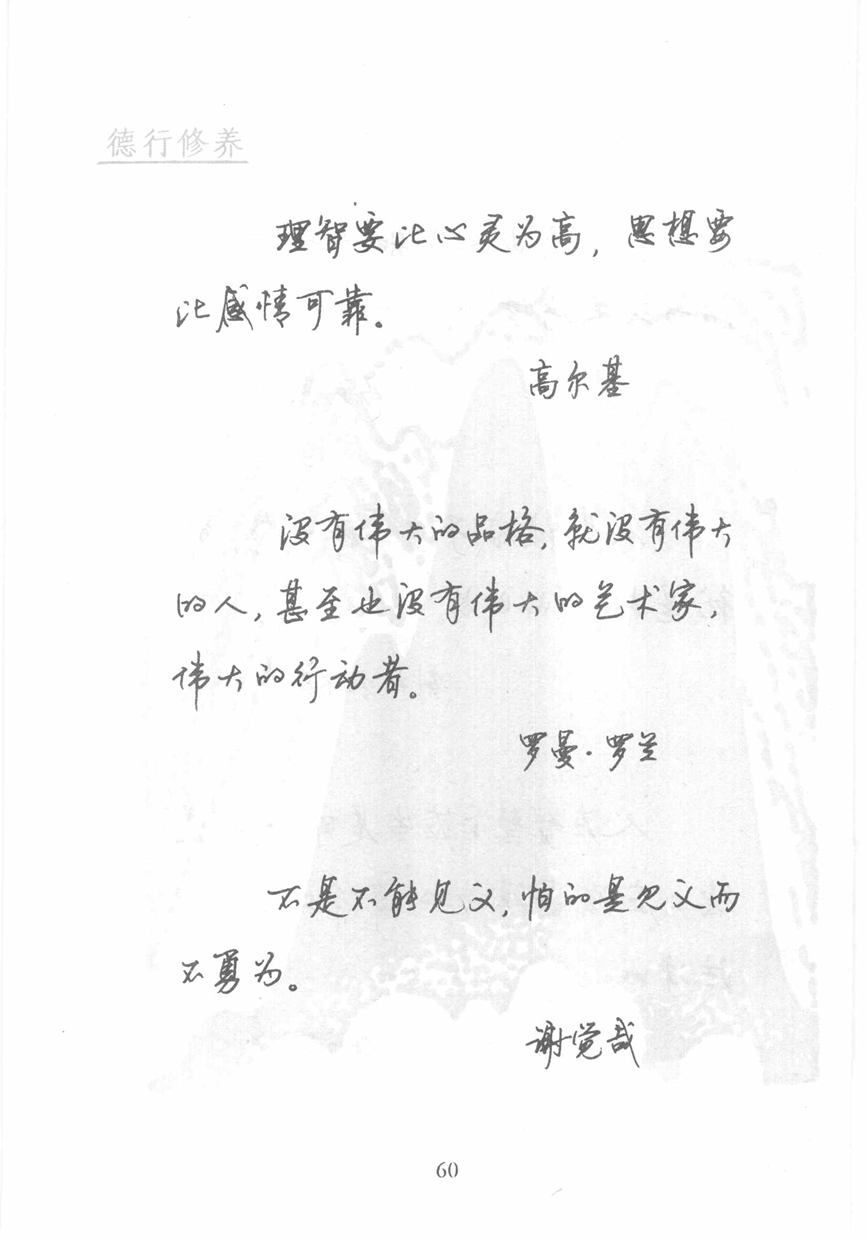 德行修养
理智要比心灵为高，思想要
比感情可靠。
高尔基
没有伟大的品格，就没有伟大
的人，甚至也没有伟大的艺术家，
伟大的行动者。
罗曼·罗兰
不是不能见义，怕的是见义而
不勇为。
谢觉哉
60